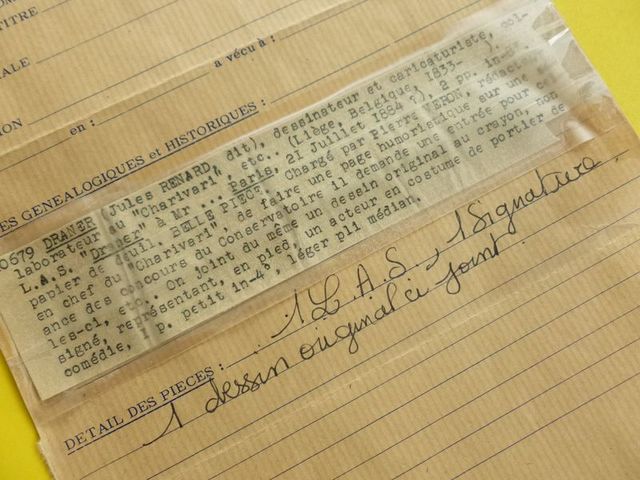 TITRE
ALE
a vécu à :
ION
en :
ES GENEALOGIQUES et HISTORIQUES :
0679 DRANER (Jules RENARD, dit), dessinateur et caricaturiste, col-
laborateur au "Charivari", etc.. (Liège, Belgique, 1833- ).
L.A.S. "Draner" à Mr ... Paris, 21 Juillet 1884 ?), 2 pp. in-8°,
papier de deuil. BELLE PIECE. Chargé par Pierre VERON, rédact.
en chef du "Charivari", de faire une page humoristique sur une
ance des concours du Conservatoire il demande une entrée pour
les-ci, etc.. On joint du même un dessin original au crayon, non
signé, représentant, en pied, un acteur en costume de portier de
comédie, 1 p. petit in-4°, léger pli médian.
DETAIL DES PIECES : 1 L.A.S. 1 Signature
1 dessin original ci joint.